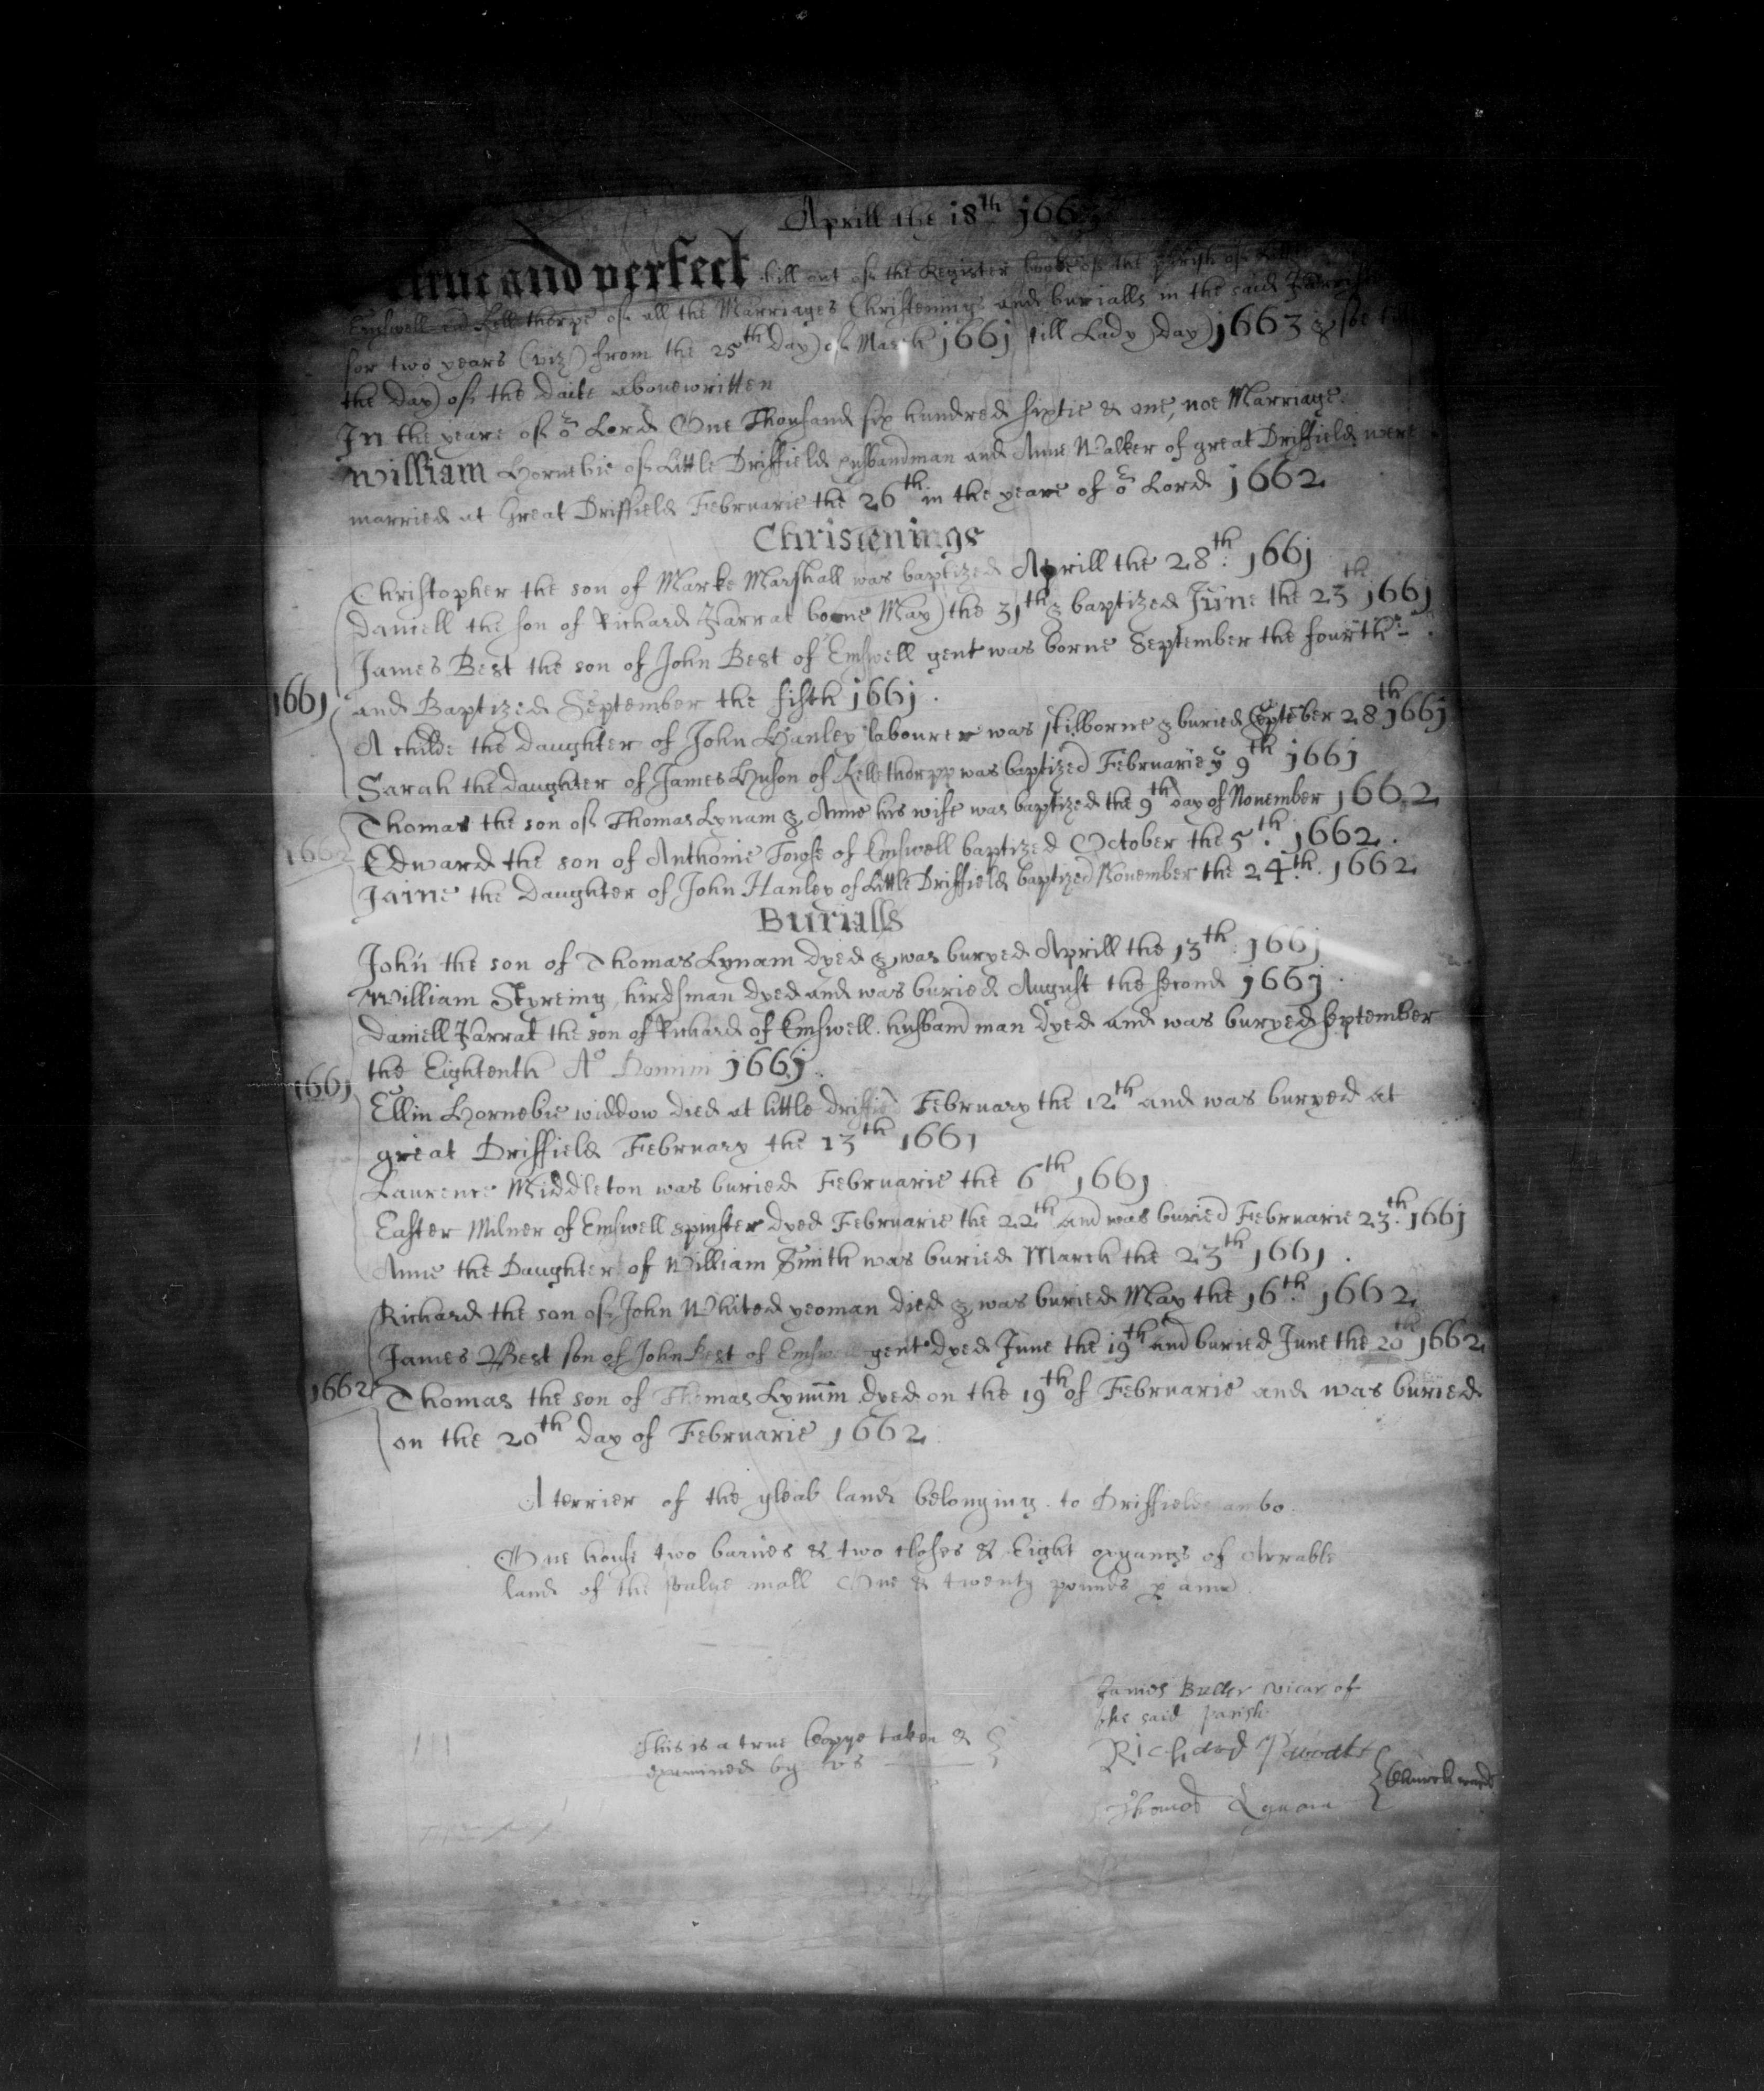 Aprill the 18th 1663
true and perfect bill out of the Register booke of the parish of
Emswell and Kellthorpe of all the Marriages Christenings and burialls in the said Parrish
for two yeares (viz) from the 25th Day of March 1661 till Lady Day 1663 & soe till
the Day of the Daite abovewritten
In the yeare of or Lord One Thousand six hundred sixtie & one, noe Marriage.
William Hornebie of Little Driffield husbandman and Anne Walker of great Driffield were
married at Great Driffield Februarie the 26th in the yeare of or Lord 1662
Christenings
Christopher the son of Marke Marshall was baptized Aprill the 28th. 1661
Daniell the son of Richard Jarrat borne May the 31th & baptized June the 23th 1661
James Best the son of John Best of Emswell gent was borne September the fourth
1661 and Baptized September the fifth 1661.
A childe the daughter of John Hanley labourer was stilborne & buried September 28th 1661
Sarah the daughter of James Huson of Kellethorpp was baptized Februarie ye 9th 1661
Thomas the son of Thomas Lynam & Anne his wife was baptized the 9th day of November 1662
1662 Edward the son of Anthonie Towse of Emswell baptized October the 5th. 1662.
Jaine the Daughter of John Hanley of Little Driffield baptized November the 24th. 1662
Burialls
John the son of Thomas Lynam dyed & was buryed Aprill the 13th. 1661
William Styreing hirdsman dyed and was buried August the second 1661.
Daniell Jarrat the son of Richard of Emswell husband man dyed and was buryed September
the Eightenth Ao Domini 1661.
1661 Ellin Hornebie widdow died at little driffield February the 12th and was buryed at
great Driffield February the 13th 1661
Laurence Middleton was buried Februarie the 6th 1661
Easter Milner of Emswell spinster dyed Februarie the 22th and was buried Februarie 23th. 1661
Anne the Daughter of William Smith was buried March the 23th 1661.
Richard the son of John Whited yeoman died & was buried May the 16th. 1662
James Best son of John Best of Emswell gent dyed June the 19th and buried June the 20th 1662
1662 Thomas the son of Thomas Lynam dyed on the 19th of Februarie and was buried
on the 20th day of Februarie 1662
A terrier of the gleab land belonging to Driffield ambo
One house two barnes & two closes & Eight oxgangs of Arrable
land of the valye in all One & twenty pounds p ann
James Butler vicar of
the said parish
This is a true Coppye taken &
examined by us
Richard
Thomas Lynam
Church wards